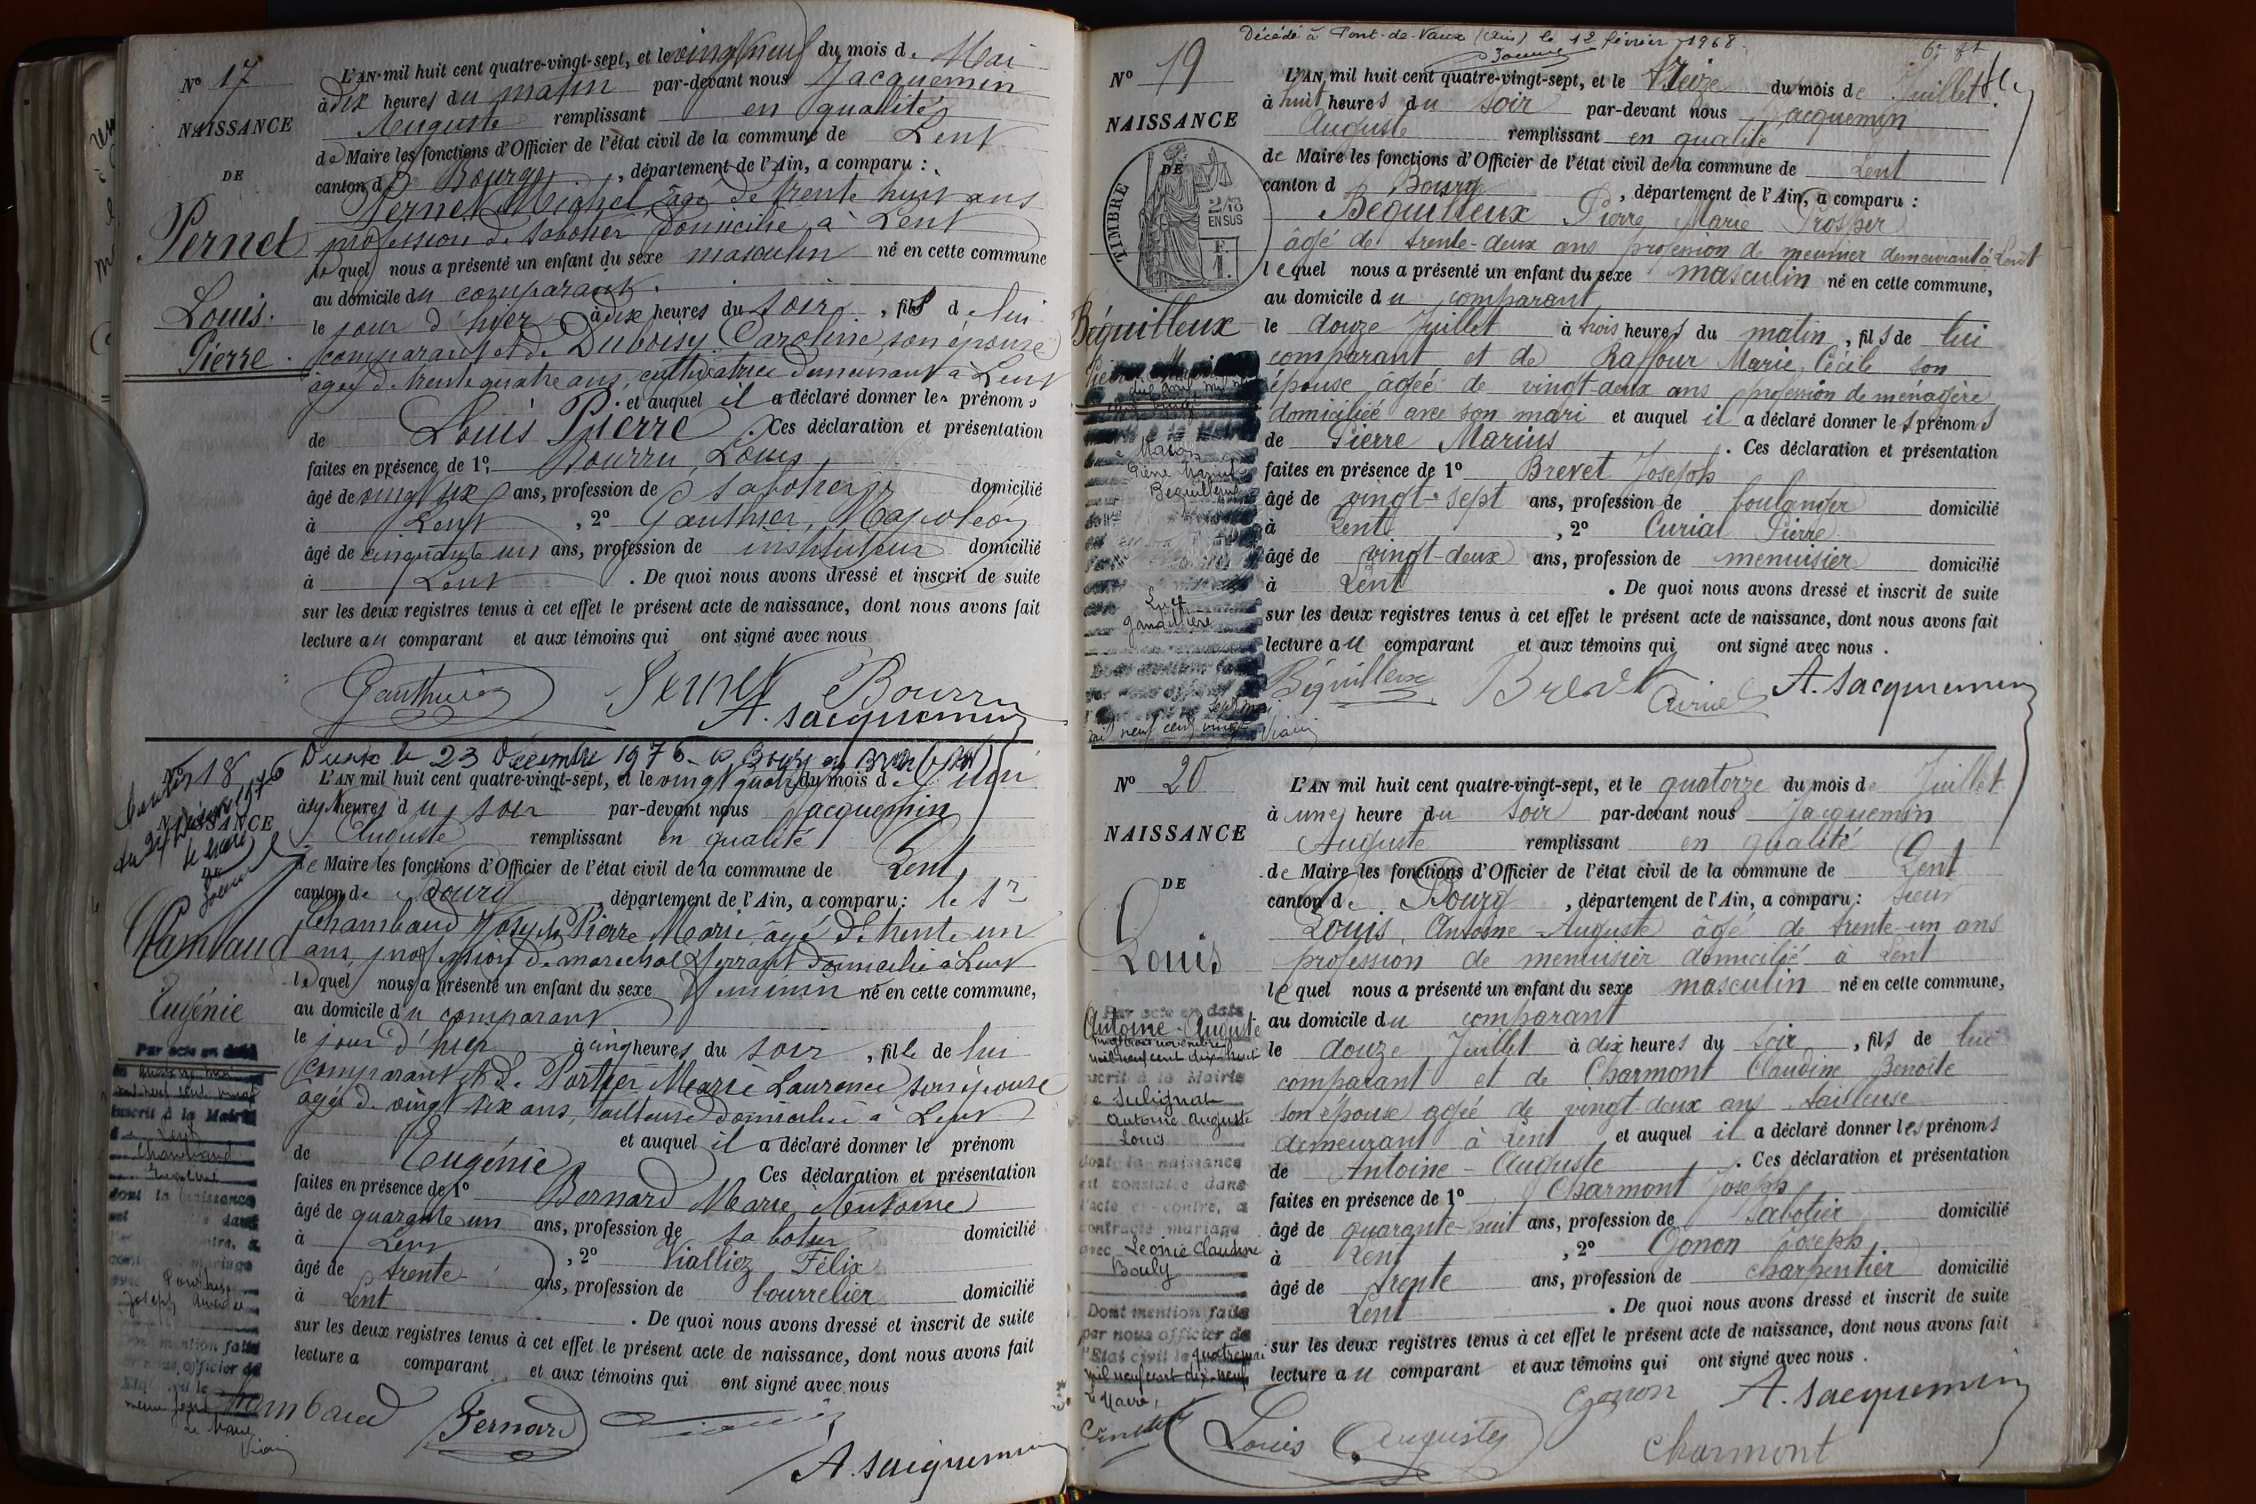 N° 17
NAISSANCE
DE
Pernet
Louis.
Pierre.
L'AN mil huit cent quatre-vingt-sept, et le vingt neuf du mois de Mai
à dix heures du matin par-devant nous Jacquemin
Auguste remplissant en qualité
de Maire les fonctions d'Officier de l'état civil de la commune de Lent
canton de Bourg, département de l'Ain, a comparu :
Pernet Michel âgé de trente huit ans
profession de sabotier domicilié à Lent
lequel nous a présenté un enfant du sexe masculin né en cette commune
au domicile du comparant.
le jour d'hier à dix heures du soir, fils de lui
comparant et de Duboisy Caroline, son épouse
âgée de trente quatre ans, cultivatrice demeurant à Lent
et auquel il a déclaré donner les prénoms
de Louis Pierre. Ces déclaration et présentation
faites en présence de 1° Bourru, Louis
âgé de vingt six ans, profession de sabotier domicilié
à Lent, 2° Gauthier, Napoléon
âgé de cinquante un ans, profession de instituteur domicilié
à Lent. De quoi nous avons dressé et inscrit de suite
sur les deux registres tenus à cet effet le présent acte de naissance, dont nous avons fait
lecture au comparant et aux témoins qui ont signé avec nous
Gauthier Pernet Bourru
A. Jacquemin
N° 18
NAISSANCE
Chambaud
Eugénie
Par acte en date
inscrit à la Mairie
Lent
Chambaud
dont la naissance
Joseph
Dont mention faite
officier de
le Maire
Décédée le 23 Décembre 1976 à Bourg en Bresse (Ain)
L'AN mil huit cent quatre-vingt-sept, et le vingt quatre du mois de Juin
à sept heures du soir par-devant nous Jacquemin
Auguste remplissant en qualité
de Maire les fonctions d'Officier de l'état civil de la commune de Lent
canton de Bourg, département de l'Ain, a comparu : le Sr
Chambaud Joseph Pierre Marie, âgé de trente un
ans, profession de maréchal ferrant domicilié à Lent
lequel nous a présenté un enfant du sexe féminin né en cette commune,
au domicile du comparant
le jour d'hier à cinq heures du soir, fille de lui
comparant et de Portier Marie Laurence son épouse
âgée de vingt six ans, tailleuse domiciliée à Lent
et auquel il a déclaré donner le prénom
de Eugénie Ces déclaration et présentation
faites en présence de 1° Bernard Marie Antoine
âgé de quarante un ans, profession de sabotier domicilié
à Lent, 2° Vialliez Félix
âgé de trente ans, profession de bourrelier domicilié
à Lent. De quoi nous avons dressé et inscrit de suite
sur les deux registres tenus à cet effet le présent acte de naissance, dont nous avons fait
lecture a comparant et aux témoins qui ont signé avec nous
Chambaud Bernard
A. Jacquemin
Décédé à Pont-de-Vaux (Ain) le 12 février 1968.
N° 19
NAISSANCE
DE
TIMBRE
2/10
EN SUS
Béquilleux
Mâcon
Pierre Marius
Béquilleux
mil neuf cent vingt
L'AN mil huit cent quatre-vingt-sept, et le treize du mois de Juillet
à huit heures du soir par-devant nous Jacquemin
Auguste remplissant en qualité
de Maire les fonctions d'Officier de l'état civil de la commune de Lent
canton d Bourg, département de l'Ain, a comparu :
Béquilleux Pierre Marie Prosper
âgé de trente-deux ans profession de meunier demeurant à Lent
lequel nous a présenté un enfant du sexe masculin né en cette commune,
au domicile du comparant
le douze Juillet à trois heures du matin, fils de lui
comparant et de Raffour Marie Cécile son
épouse âgée de vingt-deux ans profession de ménagère
domiciliée avec son mari et auquel il a déclaré donner les prénoms
de Pierre Marius. Ces déclaration et présentation
faites en présence de 1° Brevet Joseph
âgé de vingt-sept ans, profession de boulanger domicilié
à Lent, 2° Curial Pierre
âgé de vingt-deux ans, profession de menuisier domicilié
à Lent. De quoi nous avons dressé et inscrit de suite
sur les deux registres tenus à cet effet le présent acte de naissance, dont nous avons fait
lecture au comparant et aux témoins qui ont signé avec nous.
Béquilleux Brevet Curial A. Jacquemin
N° 20
NAISSANCE
DE
Louis
Antoine-Auguste
Par acte en date
vingt trois novembre
mil neuf cent dix huit
inscrit à la Mairie
de Subignat
Antoine Auguste
Louis
dont la naissance
est constatée dans
l'acte ci-contre, a
contracté mariage
avec Léonie Claudine
Bouly
Dont mention faite
par nous officier de
l'Etat civil le quatre mai
mil neuf cent dix-neuf
Le Maire,
L'AN mil huit cent quatre-vingt-sept, et le quatorze du mois de Juillet
à une heure du soir par-devant nous Jacquemin
Auguste remplissant en qualité
de Maire les fonctions d'Officier de l'état civil de la commune de Lent
canton de Bourg, département de l'Ain, a comparu : sieur
Louis, Antoine-Auguste âgé de trente-un ans
profession de menuisier domicilié à Lent
lequel nous a présenté un enfant du sexe masculin né en cette commune,
au domicile du comparant
le douze Juillet à dix heures du soir, fils de lui
comparant et de Charmont Claudine Benoîte
son épouse âgée de vingt-deux ans tailleuse
demeurant à Lent et auquel il a déclaré donner les prénoms
de Antoine-Auguste. Ces déclaration et présentation
faites en présence de 1° Charmont Joseph
âgé de quarante-huit ans, profession de sabotier domicilié
à Lent, 2° Gonon Joseph
âgé de trente ans, profession de charpentier domicilié
Lent. De quoi nous avons dressé et inscrit de suite
sur les deux registres tenus à cet effet le présent acte de naissance, dont nous avons fait
lecture au comparant et aux témoins qui ont signé avec nous.
Gonon A. Jacquemin
Louis Auguste Charmont